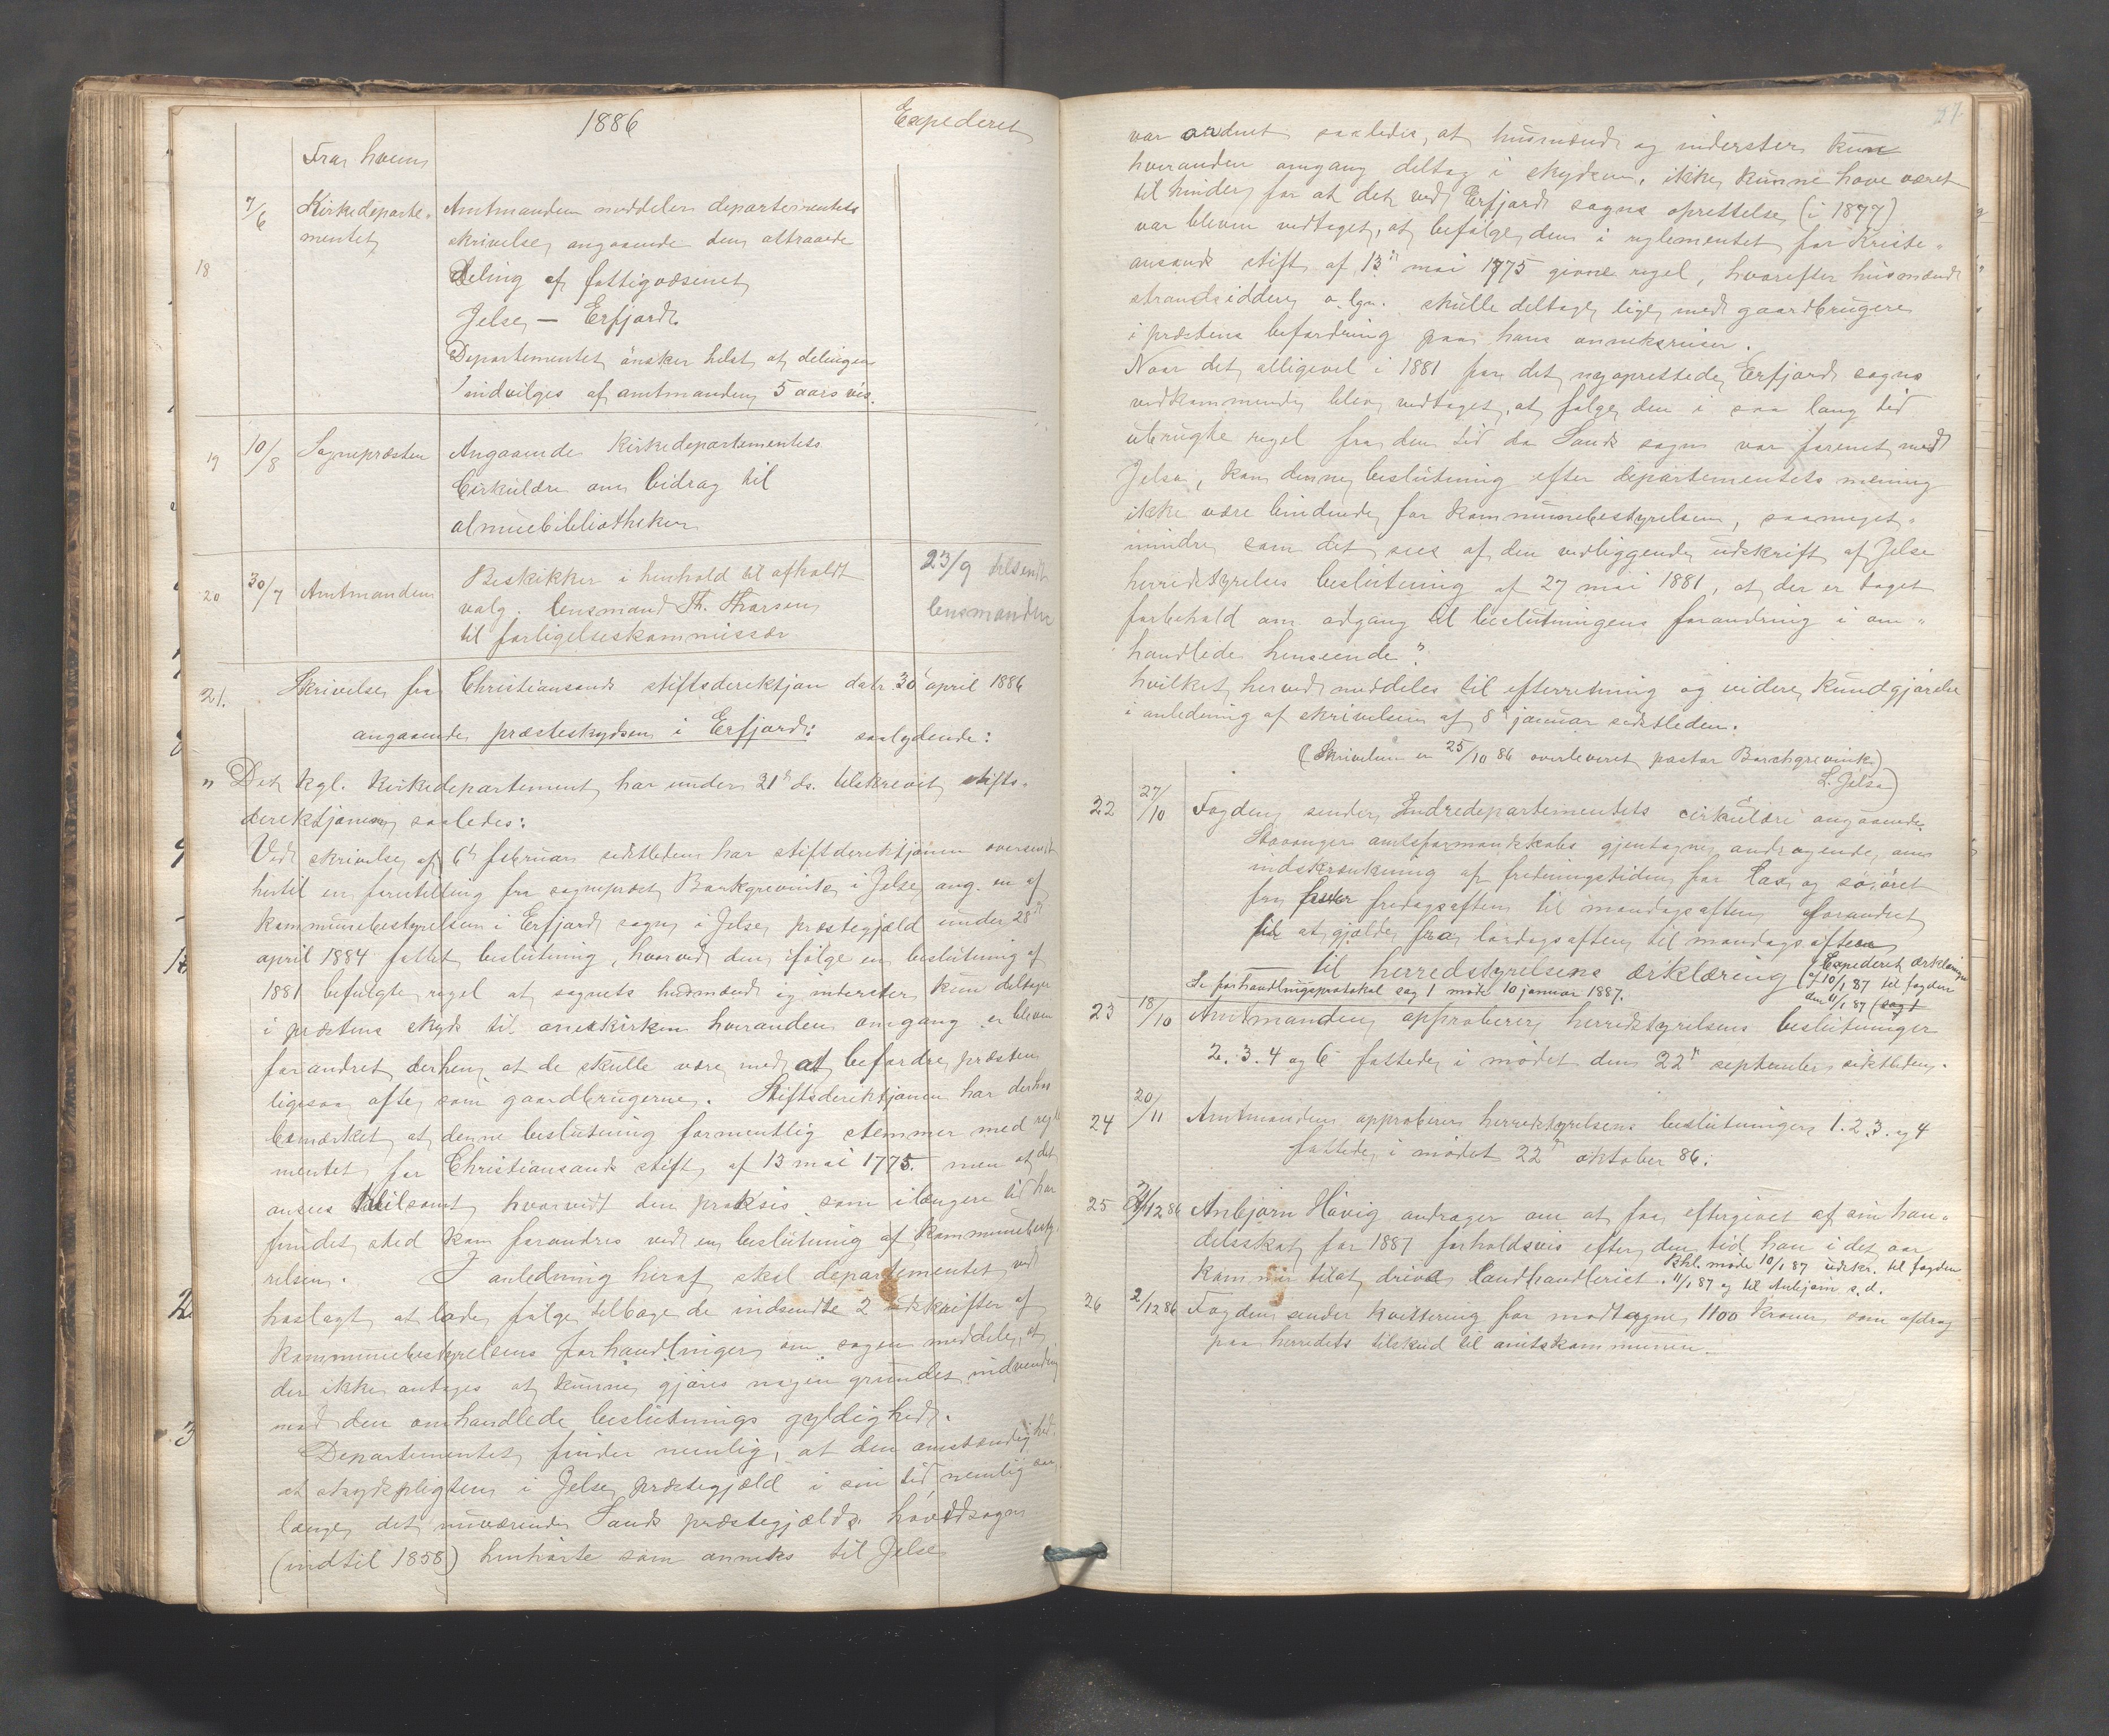 1886
Expederet
Fra hvem
18 7/6 Kirkedeparte- Amtmanden meddeler departementets
mentet skrivelse angaaende den attraaede
Deling af fattigvæsenet
Jelse — Erfjord.
Departementet ønsker helst at delingen
indvilges af amtmanden 5 aars vis.
19 10/8 Sognepræsten Angaaende Kirkedepartementets
Cirkulære om bidrag til
almuebibliotheker
20 30/7 Amtmanden Beskikker i henhold til afholdt 23/9 tilsendt
valg. lensmand Th. Tharsen lensmanden
til forligelseskommissær
21. Skrivelse fra Christiansands stiftsdirektjon datr. 30 april 1886
angaaende præsteskydsen i Erfjord: saalydende:
" Det kgl. Kirkedepartement har under 21de ds. tilskrevet stifts-
derektjonen saaledes:
Ved skrivelse af 6te februar sidstleden har stiftderektjonen oversendt
hertil en forestilling fra sogneprest Barkgrevink i Jelse ang. en af
kommunebestyrelsen i Erfjord sogn i Jelse præstegjæld under 28de
april 1884 fattet beslutning, hvorved den ifølge en beslutning af
1881 befulgte regel at sognets husmænd og inderster kun deltager
i præstens skyds til anekskirken hveranden omgang er bleven
forandret derhen, at de skulle være med at befordre præsten
ligesaa ofte som gaardbrugerne. Stiftsderektjonen har derhos
bemærket at denne beslutning formentlig stemmer med regle
mentet for Christiansands stift af 13 mai 1775. men at det
ansees tvilsomt hvorvidt den praksis som i længere tid har
fundet sted kan forandres ved en beslutning af kommunebesty-
relsen. I anledning heraf skal departementet ved
hoslagt at lade følge tilbage de indsendte 2 udskrifter af
kommunebestyrelsens forhandlinger om sagen meddele, at
der ikke antages at kunne gjøres nogen grundet indvending
mod den omhandlede beslutnings gyldighed.
Departementet finder nemlig, at den omstændighed,
at skydspligten i Jelse præstegjæld i sin tid nemlig saa
længe det nuværende Sands præstegjælds hovedsogn
(indtil 1858) henhørte som anneks til Jelse
var ordnet saaledes, at husmænd og inderster kun
hveranden omgang deltog i skydsen, ikke kunne have været
til hinder for at det ved Erfjord sogns oprettelse (i 1877)
var bleven vedtaget, at befølge den i reglementet for Kriste-
ansands stift af 13de mai 1775 givne regel, hvorefter husmænd
strandsiddere o. lgn. skulle deltage lige med gaardbrugere
i præstens befordring paa hans anneksreiser.
Naar det alligevel i 1881 for det nyoprettede Erfjord sogns
vedkommende blev vedtaget, at følge den i saa lang tid
ubrugte regel fra den tid da Sands sogn var forenet med
Jelse, kan denne beslutning efter departementets mening
ikke være bindende for kommunebestyrelsen, saameget-
mindre som det sees af den vedliggende udskrift af Jelse
herredstyrelses beslutning af 27 mai 1881, at der er taget
forbehold om adgang til beslutningens forandring i om-
handlede henseende".
hvilket herved meddeles til efterretning og videre Kundgjørelse
i anledning af skrivelsen af 8de januar sidstleden.
(Skrivelsen er 25/10 86 overleveret pastor Barchgrevink)
L. Jelsa)
22 27/10 Fogden sender Indredepartementets cirkulære angaaende
Stavanger amtsformandskabs gjentagne andragende om
indskrænkning af fredningstiden for lax og søiøret
fra fredagsaften til mandagsaften forandret
til at gjælde fra lørdagsaften til mandagsaften
til herredstyrelsens ærklæring (Expederet ærklæringen
af 10/1 87 til fogden
Se forhandlingsprotokol sag 1 møde 10 januar 1887. den 11/1 87 (sag 1
23 18/10 Amtmanden approberer herredstyrelsens beslutninger
2. 3. 4 og 6 fattede i mødet den 22de september sidstleden.
24 20/11 Amtmanden approberer herredstyrelsens beslutninger 1. 2. 3. og 4
fattede i mødet 22de oktober 86.
25 21/12 86 Anbjørn Høvig andrager om at faa eftergivet af sin han-
delsskat for 1887 forholdsvis efter den tid han i det aar
kommer tilat drive landhandleriet. Bhl. møde 10/1 87 udskr. til fogden
11/1 87 og til Anbjørn s. d.
26 2/12 86 Fogden sender kvittering for modtagne 1100 kroner som afdrag
paa herredets tilskud til amtskommunen.